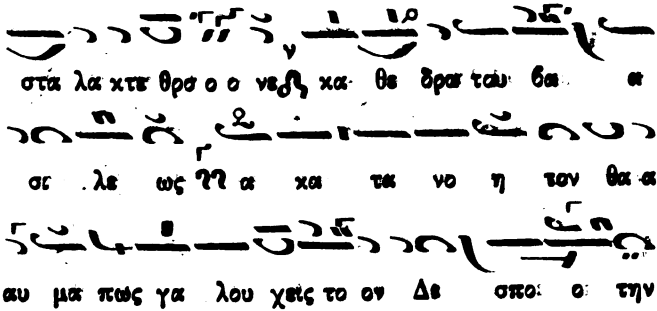 στα λα κτε θρο ο ο νε κα θε δρα του βα α
σι λε ως α κα τα νο η τον θα α
αυ μα πως γα λου χεις το ον Δε σπο ο την